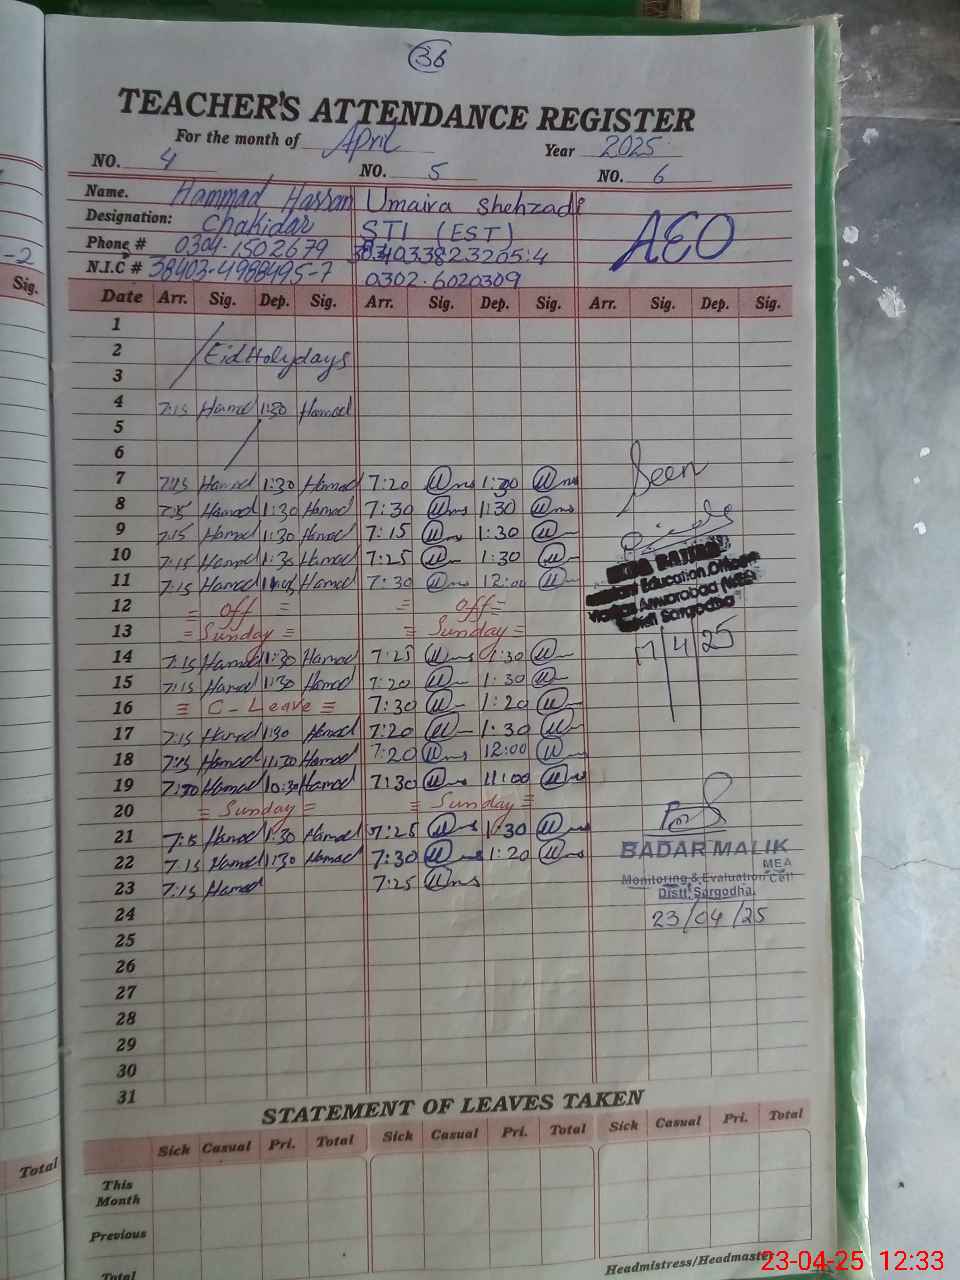 36
TEACHER'S ATTENDANCE REGISTER
For the month of April Year 2025
NO. 4 NO. 5 NO. 6
Name. Hammad Hassan Umaira Shehzadi
Designation: Chakidar STI (EST) AEO
Phone # 0304-1502679
N.I.C # 38403-4988495-7 0302-6020309
-2
Sig.
Date Arr. Sig. Dep. Sig. Arr. Sig. Dep. Sig. Arr. Sig. Dep. Sig.
1
2 Eid Holydays
3
4 7:15 Hamad 1:30 Hamad
5
6
7 7:15 Hamad 1:30 Hamad 7:20 1:30 Seen
8 7:15 Hamad 1:30 Hamad 7:30 1:30
9 7:15 Hamad 1:30 Hamad 7:15 1:30
10 7:15 Hamad 1:30 Hamad 7:25 1:30
11 7:15 Hamad Hamad 7:30 12:00 Education Officer
12 = Off = = Off =
13 = Sunday = = Sunday = Distt Sargodha
14 7:15 Hamad 1:30 Hamad 7:25 1:30 17/4/25
15 7:15 Hamad 1:30 Hamad 7:20 1:30
16 = C-Leave = 7:30 1:20
17 7:15 Hamad 1:30 Hamad 7:20 1:30
18 7:15 Hamad 11:30 Hamad 7:20 12:00
19 7:30 Hamad 10:30 Hamad 7:30 11:00
20 = Sunday = = Sunday =
21 7:15 Hamad 1:30 Hamad 7:25 1:30
22 7:15 Hamad 1:30 Hamad 7:30 1:20
BADAR MALIK
MEA
23 7:15 Hamad 7:25
Monitoring & Evaluation Cell
Distt. Sargodha.
24 23/04/25
25
26
27
28
29
30
31
STATEMENT OF LEAVES TAKEN
Sick Casual Pri. Total Sick Casual Pri. Total Sick Casual Pri. Total
Total
This Month
Previous
Total
Headmistress/Headmaster
23-04-25 12:33